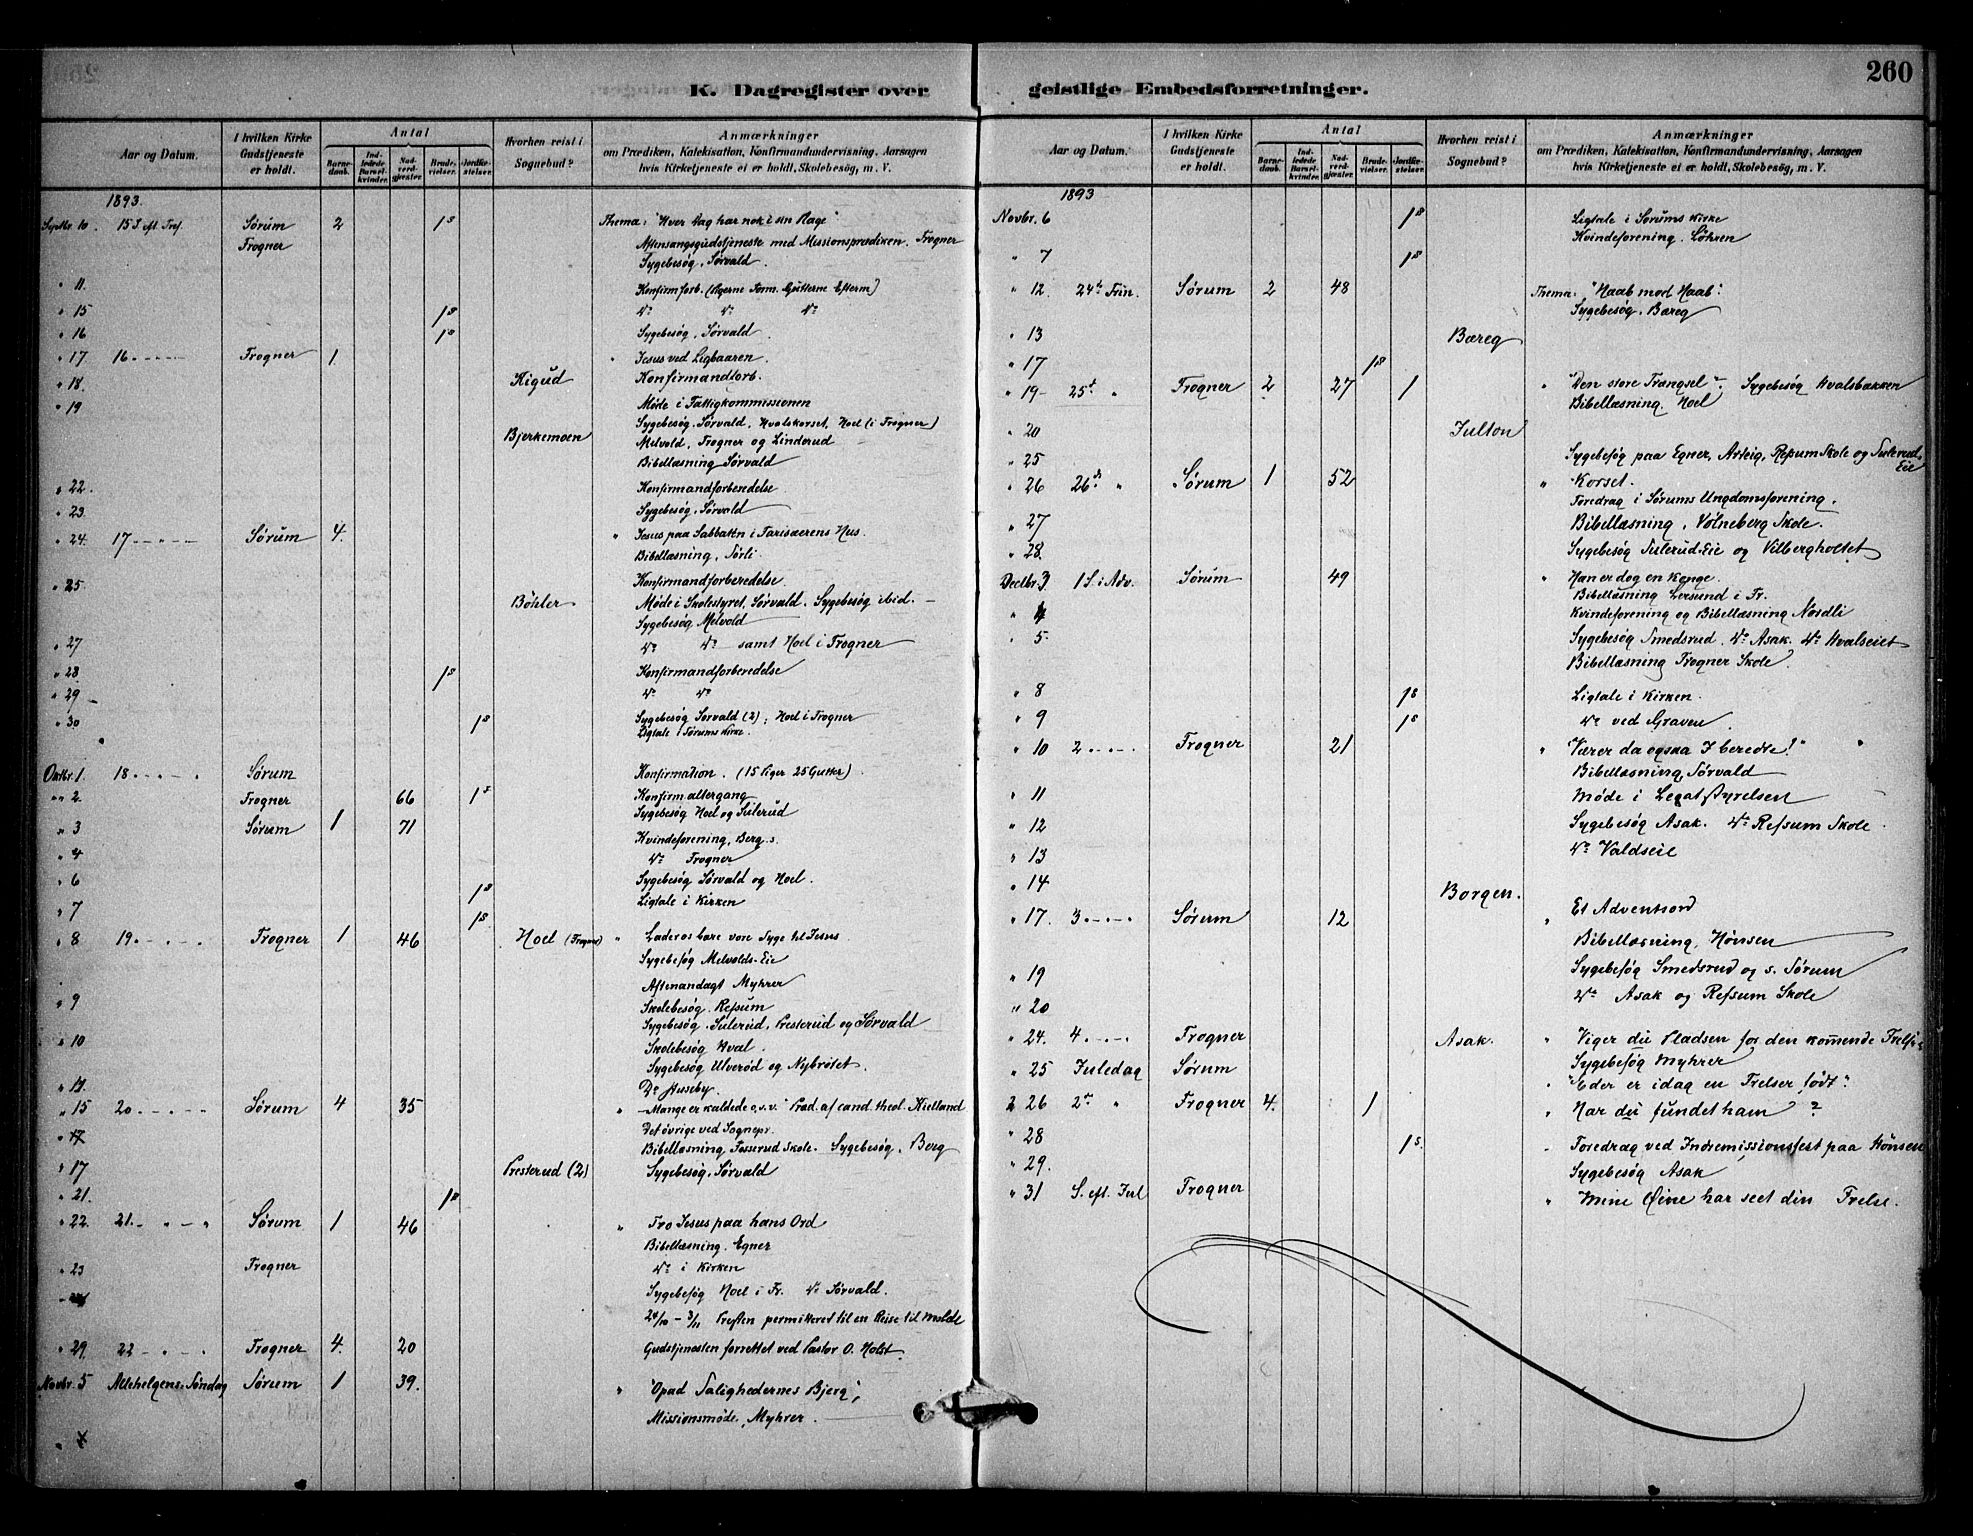 260
K. Dagregister over geistlige Embedsforretninger.
Aar og Datum.
I hvilken Kirke Gudstjeneste er holdt.
Antal
Barnedaab.
Indledede Barselkvinder.
Nadverdgjæster.
Brudevielser.
Jordfæstelser.
Hvorhen reist i Sognebud?
Anmærkninger
om Prædiken, Katekisation, Konfirmandundervisning, Aarsagen
hvis Kirketjeneste ei er holdt, Skolebesøg, m. V.
1893.
Septbr 10. 15 S. eft. Tref. Sørum 2 1 s Thema: "Hver Dag har nok i sin Plage"
Frogner Aftensangsgudstjeneste med Missionsprædiken. Frogner
Sygebesøg, Sørvald.
" 11. Konfirmforb. (Pigerne Form. Gutterne Efterm)
" 15 1 s do do do
" 16 1 s Sygebesøg, Sørvald
" 17 16 - - - - Frogner 1 " Jesus ved Ligbaaren.
" 18. Rigud Konfirmandforb.
" 19 Møde i Fattigkommissionen
Sygebesøg Sørvald, Hvalskorset, Noel (i Frogner)
Bjerkemoen Melvold, Frogner og Linderud
Bibellæsning Sørvald
" 22. Konfirmandforberedelse
" 23. Sygebesøg, Sørvald
" 24. 17 - - - - Sørum 4. " Jesus paa Sabbaten i Farisæerens Hus.
Bibellæsning, Sørli.
" 25 Konfirmandforberedelse.
Böhler Møde i Skolestyret, Sørvald. Sygebesøg ibid. -
Sygebesøg Melvold
" 27 do do samt Noel i Frogner
" 28 1 s Konfirmandforberedelse
" 29 - do do
" 30 1 s Sygebesøg Sørvald (2); Noel i Frogner
Ligtale i Sørums Kirke.
Oktbr. 1. 18 - - - - Sørum Konfirmation. (15 Piger 25 Gutter).
" 2. Frogner 66 1 s Konfirmaltergang
Sygebesøg Noel og Sulerud
" 3 Sørum 1 71 Kvindeforening, Berg s.
" 4 do Frogner
" 6 1 s Sygebesøg Sørvald og Noel.
" 7 1 s Ligtale i Kirken
" 8 19. - - - Frogner 1 46 Noel (Frogner) " Lader os bare vore Syge til Jesus
Sygebesøg Melvolds-Eie
Aftenandagt Myhrer
" 9 Skolebesøg. Refsum
Sygebesøg. Sulerud, Presterud og Sørvald
" 10 Skolebesøg Hval
Sygebesøg Ulverød og Nybrotet.
" 11. Do Husseby.
" 15 20 - - - Sørum 4 35 " - Mange er kaldede o.s.v. Præd. af cand. theol. Kielland
Det øvrige ved Sognepr.
" 17 Bibellæsning Fosserud Skole. Sygebesøg. Berg
" 17 Presterud (2) Sygebesøg, Sørvald
" 21. 1 s
" 22. 21. - " - " Sørum 1 46 " Tro Jesus paa hans Ord
Bibellæsning. Egner
" 23 Frogner do i Kirken
Sygebesøg Noel i Fr. do Sørvald.
24/10 - 3/11 Presten permitteret til en Reise til Molde
" 29. 22 - - - Frogner 4. 20 Gudstjenesten forrettet ved Pastor O. Holst.
Novbr. 5 Allehelgens. Søndag Sørum 1 39. " "Opad Salighedernes Bjerg",
Missionsmøde, Myhrer.
Aar og Datum.
I hvilken Kirke Gudstjeneste er holdt.
Antal
Barnedaab.
Indledede Barselkvinder.
Nadverdgjæster.
Brudevielser.
Jordfæstelser.
Hvorhen reist i Sognebud?
Anmærkninger
om Prædiken, Katekisation, Konfirmandundervisning, Aarsagen
hvis Kirketjeneste ei er holdt, Skolebesøg, m. V.
1893
Novbr. 6 1 s Ligtale i Sørums Kirke
Kvindeforening. Löhren
" 7 1 s
" 12. 24de Trin. Sørum 2 48 Thema: "Naab mod Haab".
Sygebesøg. Bæreg
" 13 Bæreg
" 17 1 s
" 19 - 25d " Frogner 2 27 1 " "Den store Trængsel". Sygebesøg Hvalsbakken
Bibellæsning. Noel
" 20 Julton
" 25 Sygebesøg paa Egner, Arteig, Refsum Skole og Sulerud-Eie
" 26 26d " Sørum 1 52 " Korset.
Foredrag i Sørums Ungdomsforening.
" 27 Bibellæsning, Völneberg Skole.
" 28. Sygebesøg Sulerud-Eie og Vilbergholtet
Decbr. 3 1 S. i Adv. Sørum 49 " Han er dog en Konge.
Bibellæsning Lersund i Fr.
" 4 Kvindeforening og Bibellæsning Nordli
" 5. Sygebesøg Smedsrud. do Asak. do Hvalseiet
Bibellæsning Frogner Skole
" 8 1 s Ligtale i Kirken.
" 9 1 s do ved Graven
" 10 2 - - - - Frogner 21 " "Værer da ogsaa I beredte!" "
Bibellæsning, Sørvald
" 11 Møde i Legatstyrelsen
" 12 Sygebesøg Asak. do Refsum Skole
" 13 do Valdseie
" 14 Borgen.
" 17. 3 - - - - Sørum 12 " Et Adventsord
Bibellæsning, Hønsen
" 19 Sygebesøg Smedsrud og s. Sørum
" 20 do Asak og Refsum Skole
" 24. 4 - - - - Frogner Asak. " Viger du Pladsen for den kommende Frelser
Sygebesøg Myhrer
" 25 Juledag Sørum " "Eder er idag en Frelser født".
" 26 2den " Frogner 4. 1 " Har du fundet ham?
" 28 1 s. - Foredrag ved Indremissionsfest paa Hønsen
" 29. Sygebesøg Asak
" 31 S. eft. Jul Frogner " Mine Øine har seet din Frelse.